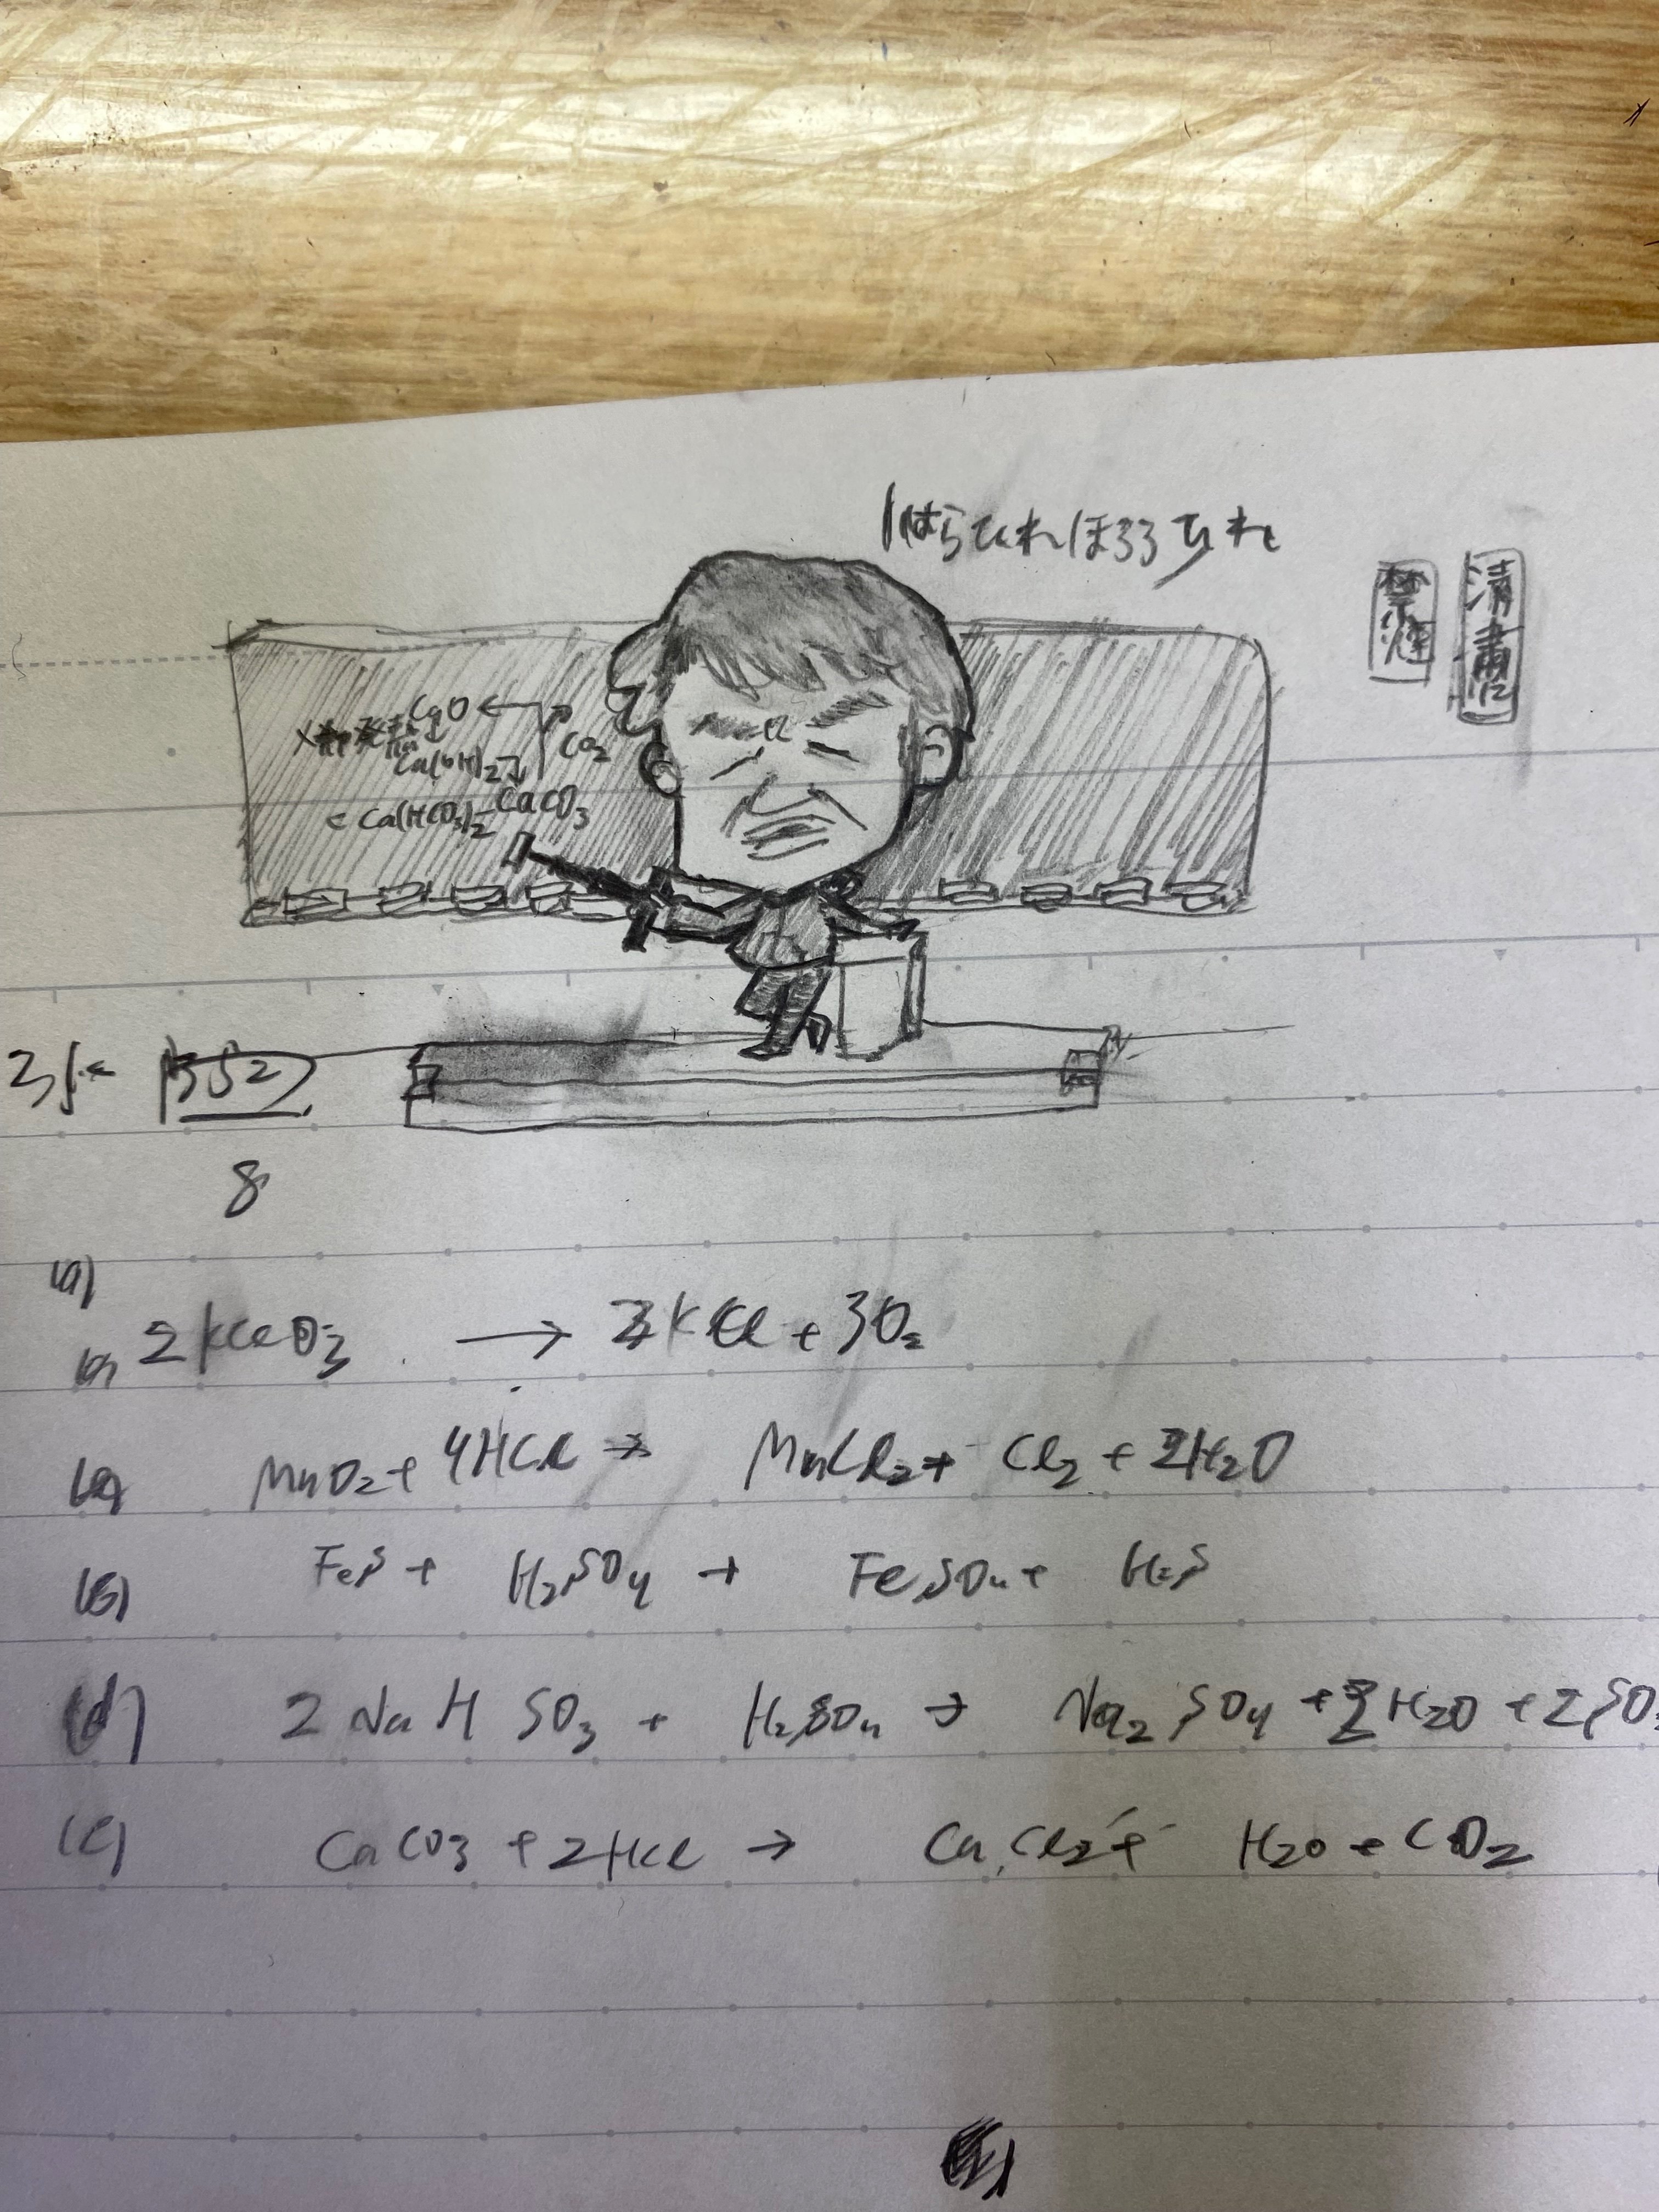 はらひれほろひれ
禁煙
清粛に
CaO
CO₂
Ca(OH)₂
CaCO₃
Ca(HCO₃)₂
8
(a)
2KClO₃ → 2KCl + 3O₂
MnO₂ + 4HCl → MnCl₂ + Cl₂ + 2H₂O
FeS + H₂SO₄ → FeSO₄ + H₂S
(d) 2NaHSO₃ + H₂SO₄ → Na₂SO₄ + 2H₂O + 2SO
(e) CaCO₃ + 2HCl → CaCl₂ + H₂O + CO₂